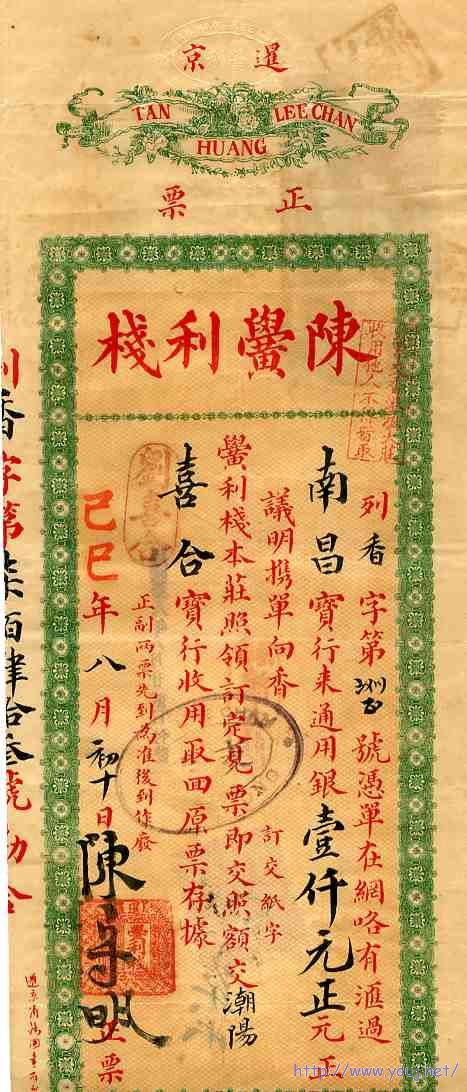 暹京
TAN LEE CHAN
HUANG
正票
陳黌利棧
列香字第 號憑單在網咯有滙過
南昌寶行来通用銀壹仟元正元正
議明携單向香 訂交紙字
黌利棧本莊照領訂定見票即交照額交潮陽
喜合寶行收用取回原票存據
正副两票先到為准後到作廢
己巳年八月初十日陳守明正票
列香字第柒佰肆拾叁號勘合
http://www.youj.net/